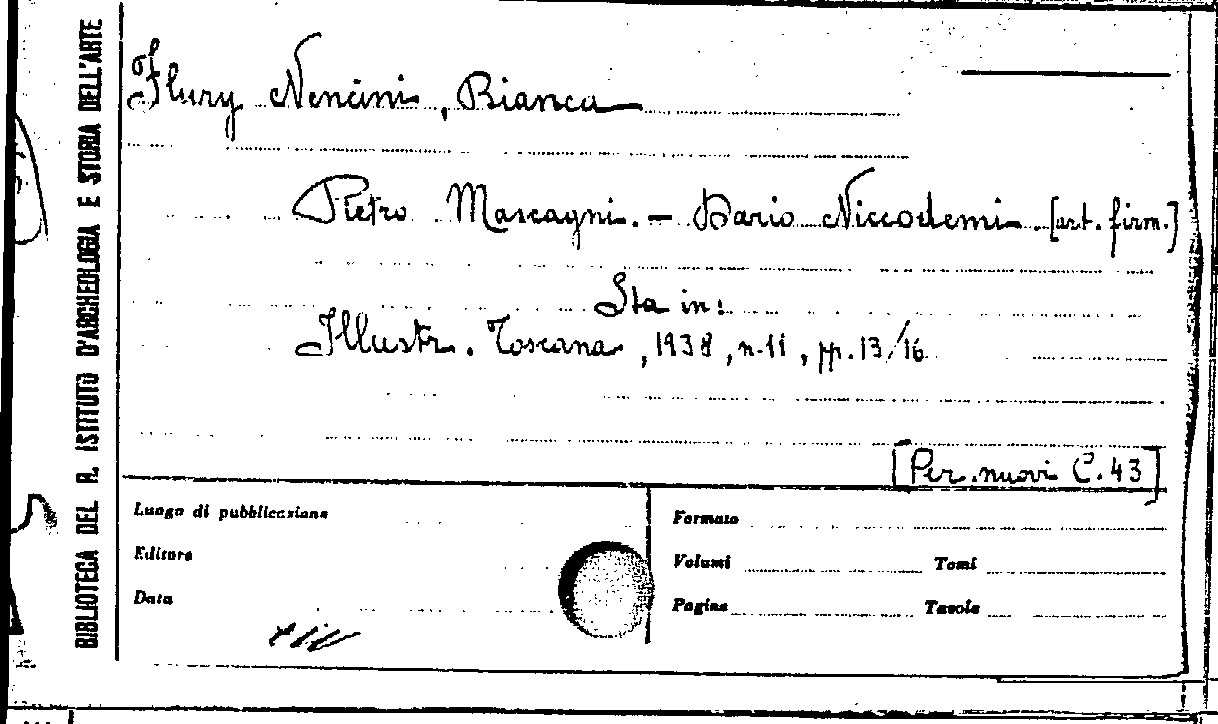 BIBLIOTECA DEL R. ISTITUTO D'ARCHEOLOGIA E STORIA DELL'ARTE
Flury Nencini, Bianca
Pietro Mascagni. - Dario Niccodemi. [art. firm.]
Sta in:
Illustr. Toscana, 1938, n. 11, pp. 13/16
[Per. nuovi C. 43]
Luogo di pubblicazione
Editore
Data
Formato
Volumi Tomi
Pagine Tavole